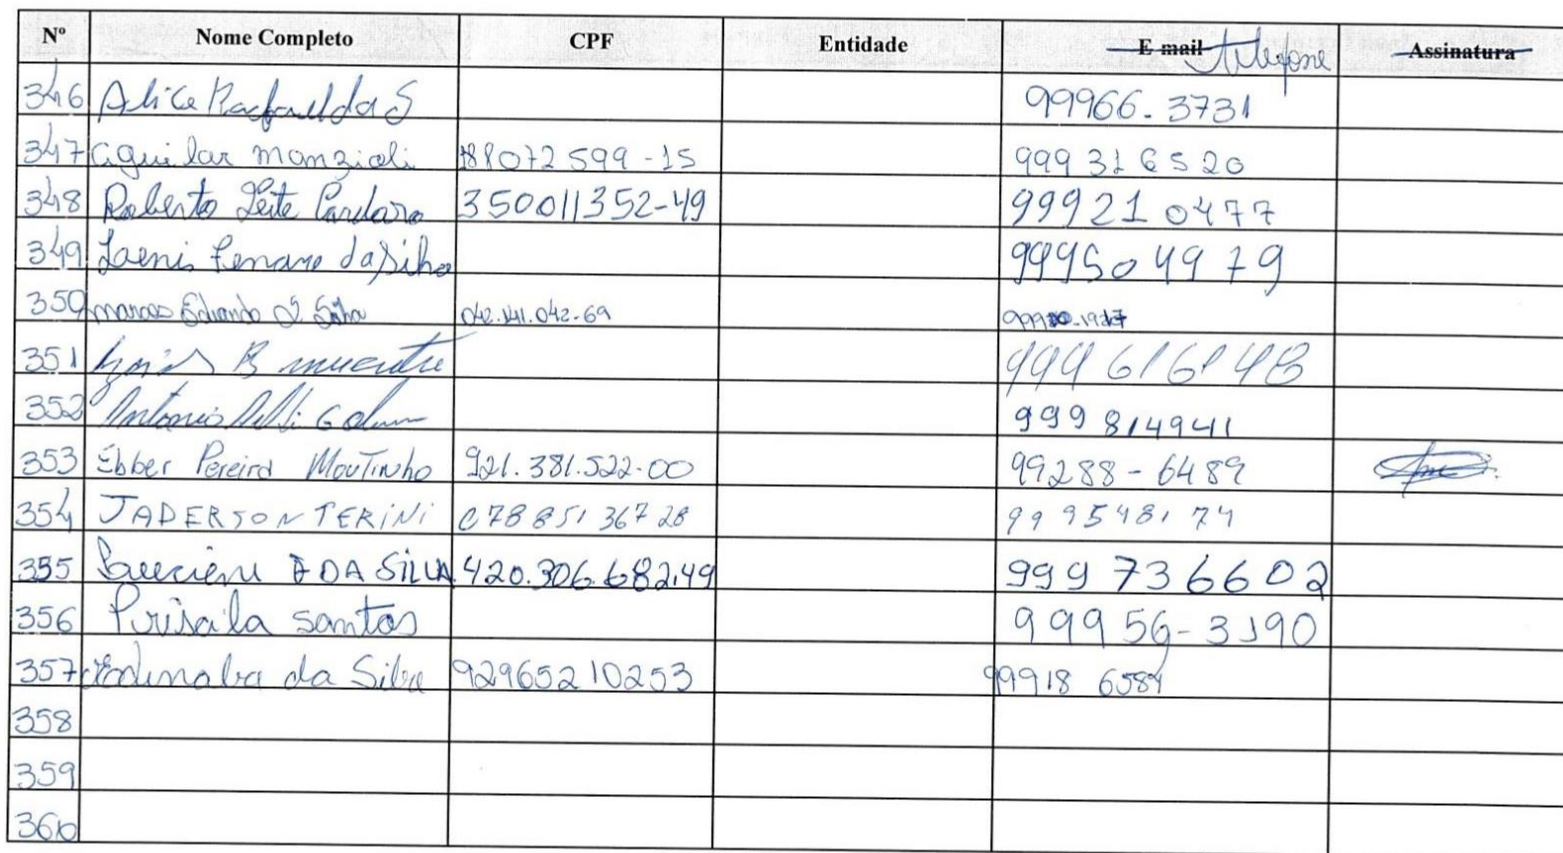 Nº Nome Completo CPF Entidade E-mail telefone Assinatura
346 Alice Rafael da S 99966-3731
347 aguilar manzioli 188072599-15 999316520
348 Roberto Leite Cardozo 350011352-49 999210477
349 da Silva 999504979
350 marcos Eduardo Silva 042.141.042-69
351 B 999616148
352 Antonio 999814941
353 Ebber Pereira Moutinho 921.381.522-00 99288-6489
354 JADERSON TERINI 07885136728 999548174
355 DA SILVA 420.306.682.49 999736602
356 Prisaila santos 99956-3190
357 da Silva 92965210253 99918 6584
358
359
360